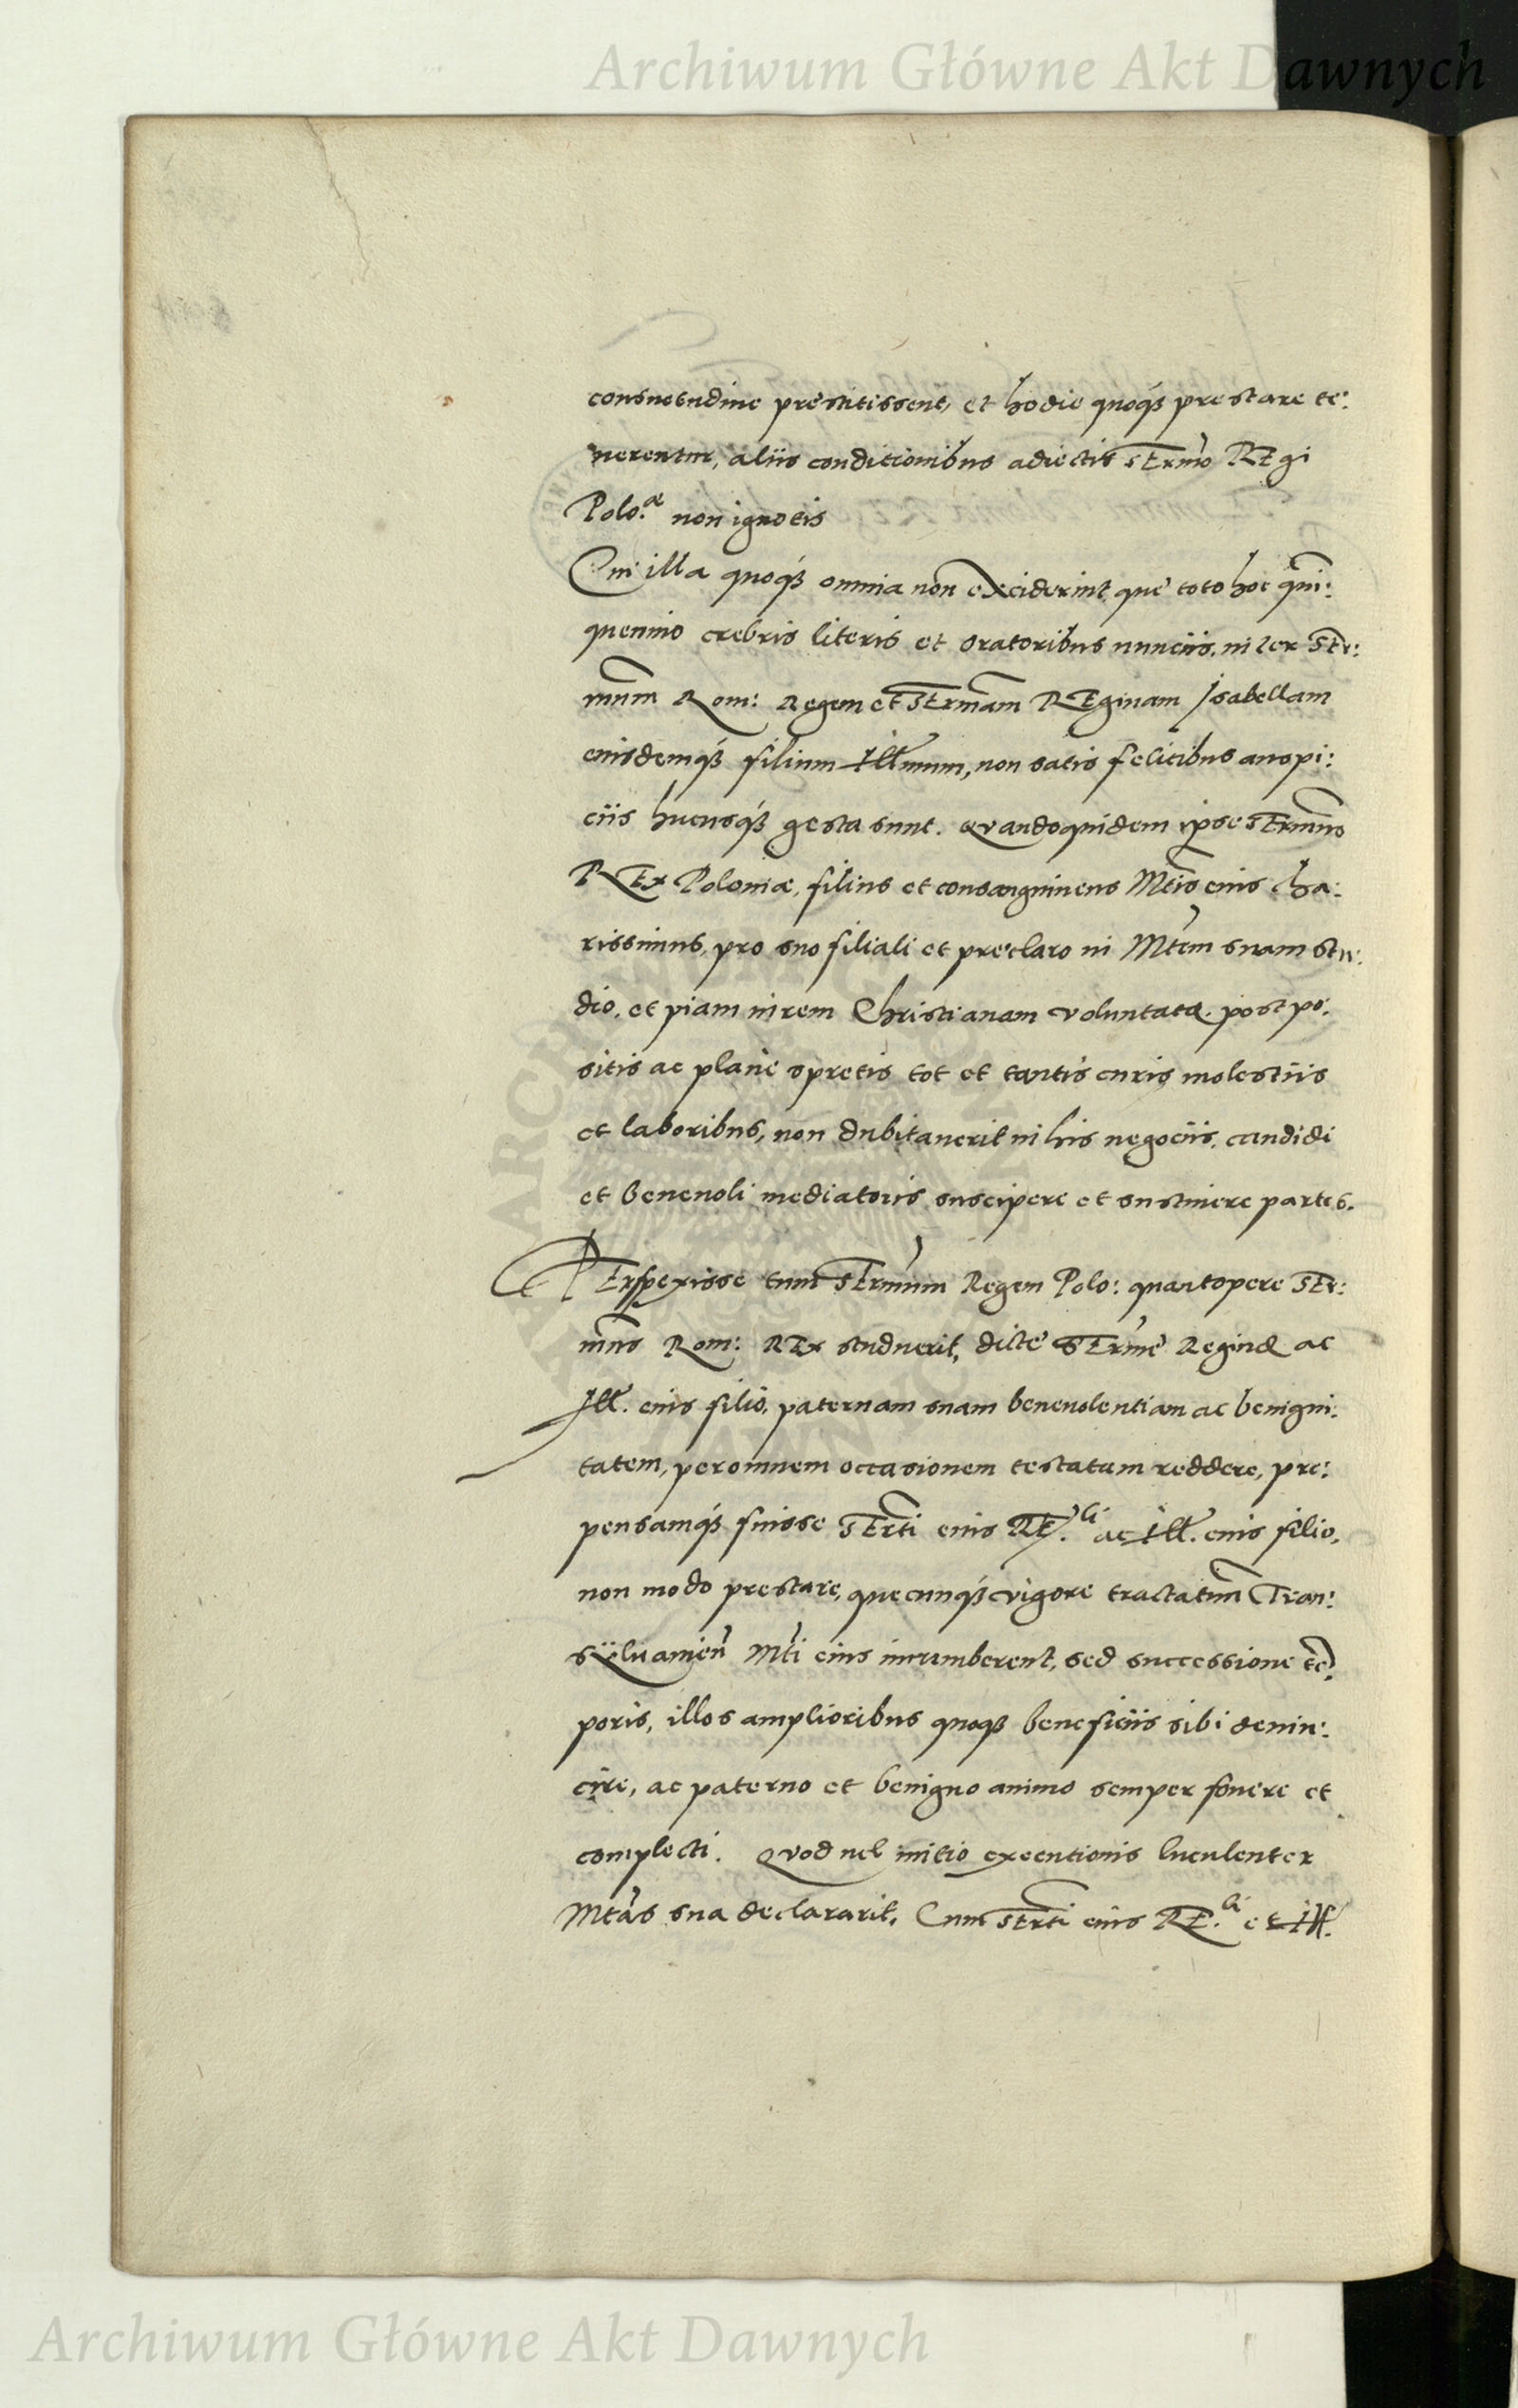 Archiwum Główne Akt Dawnych
consuetudine prestitissent, et hodie quoq3 prestare te:
nerentur, aliis conditionibus adiectis sErmo REgi
Polo:æ non ignotis
Cui illa quoq3 omnia non exciderint, que toto hoc qui:
quennio crebris literis et oratoribus nunciis, inter SEr:
mum Rom: Regem et SErmam REginam Isabellam
eiusdemq3 filium Illmum, non satis felicibus auspi:
ciis hucusq3 gesta sunt. Quandoquidem ipse sErmus
REx Poloniæ, filius et consanguineus Mtis eius cha:
rissimus, pro suo filiali et preclaro in Mtem suam stu:
dio, et piam in rem Christianam voluntatē, postpo:
sitis ac planè spretis tot et tantis curis molestiis
et laboribus, non dubitauerit in his negociis, candidi
et beneuoli mediatoris suscipere et sustinere partes.
PErspexisse tum sErmum Regem Polo: quantopere SEr:
mus Rom: REx studuerit, dicte SErme Reginæ ac
Ill. eius filio, paternam suam beneuolentiam ac benigni:
tatem, per omnem occasionem testatam reddere, pro:
pensamq3 fuisse SErti eius RE.li ac Ill. eius filio,
non modo prestare, quecunq3 vigore tractatum Tran:
sÿluanien Mti eius incumberent, sed successione tē:
poris, illos amplioribus quoq3 beneficiis sibi deuin:
cire, ac paterno et benigno animo semper fouere et
complecti. Quod uel initio executionis luculenter
Mtas sua declararit, Cum SErti eius RE.li et Ill.
Archiwum Główne Akt Dawnych